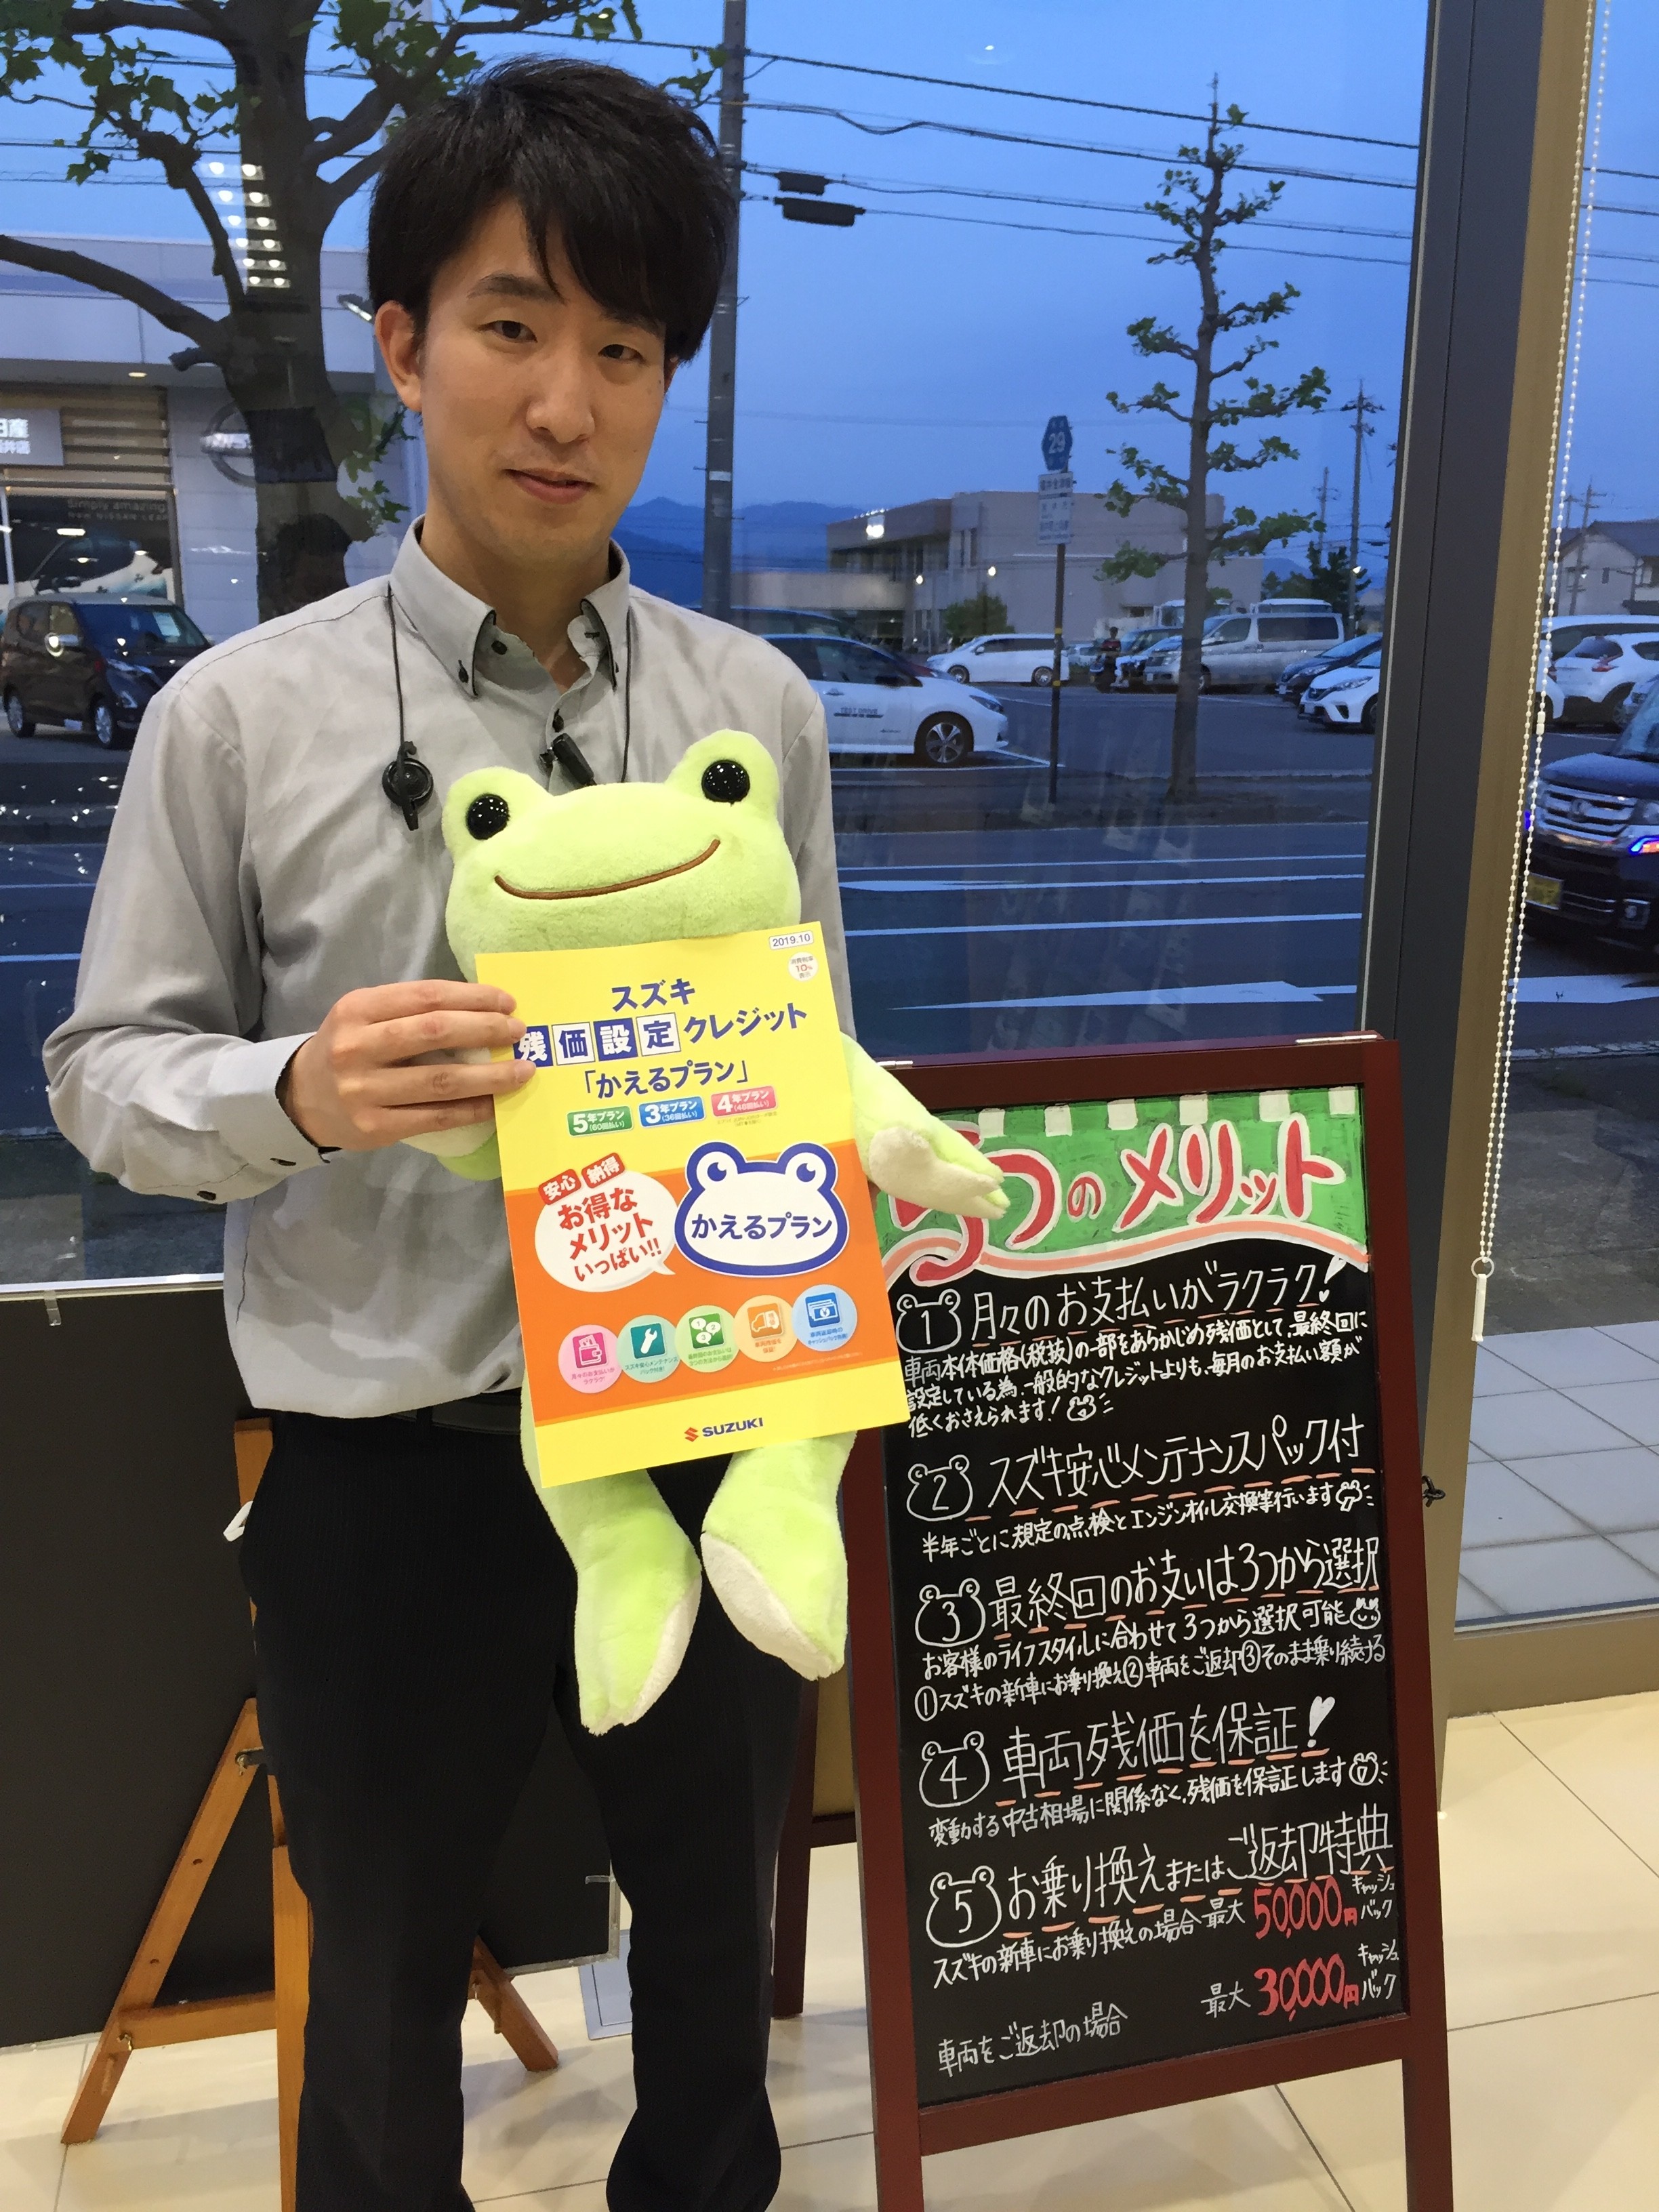 日産
井店
Simply amazing
NEW NISSAN LEAF
29
TEST DRIVE
2019.10
消費税率
10%
表示
スズキ
残価設定クレジット
「かえるプラン」
5年プラン
(60回払い)
3年プラン
(36回払い)
4年プラン
(48回払い)
安心 納得
お得な
メリット
いっぱい!!
かえるプラン
月々のお支払いが
ラクラク!
スズキ安心メンテナンス
パック付き!
最終回のお支払いは
3つの方法から選択!
車両残価を
保証!
SUZUKI
5つのメリット
1 月々のお支払いがラクラク!
車両本体価格(税抜)の一部をあらかじめ残価として、最終回に
設定している為、一般的なクレジットよりも、毎月のお支払い額が
低くおさえられます!
2 スズキ安心メンテナンスパック付
半年ごとに規定の点検とエンジンオイル交換等行います
3 最終回のお支いは3つから選択
お客様のライフスタイルに合わせて3つから選択可能
①スズキの新車にお乗り換え②車両をご返却③そのまま乗り続ける
4 車両残価を保証!
変動する中古相場に関係なく、残価を保証します
5 お乗り換えまたはご返却特典
スズキの新車にお乗り換えの場合 最大 50,000円 キャッシュバック
車両をご返却の場合 最大 30,000円 キャッシュバック